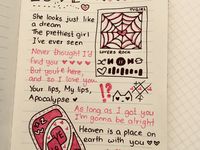 She looks just like
a dream
The prettiest girl
I've ever seen
LOVERS ROCK
Never thought I'd
find you
But you're here,
and so I love you
Your lips, My lips,
Apocalypse
As long as I got you
I'm gonna be alright
Heaven is a place on
earth with you